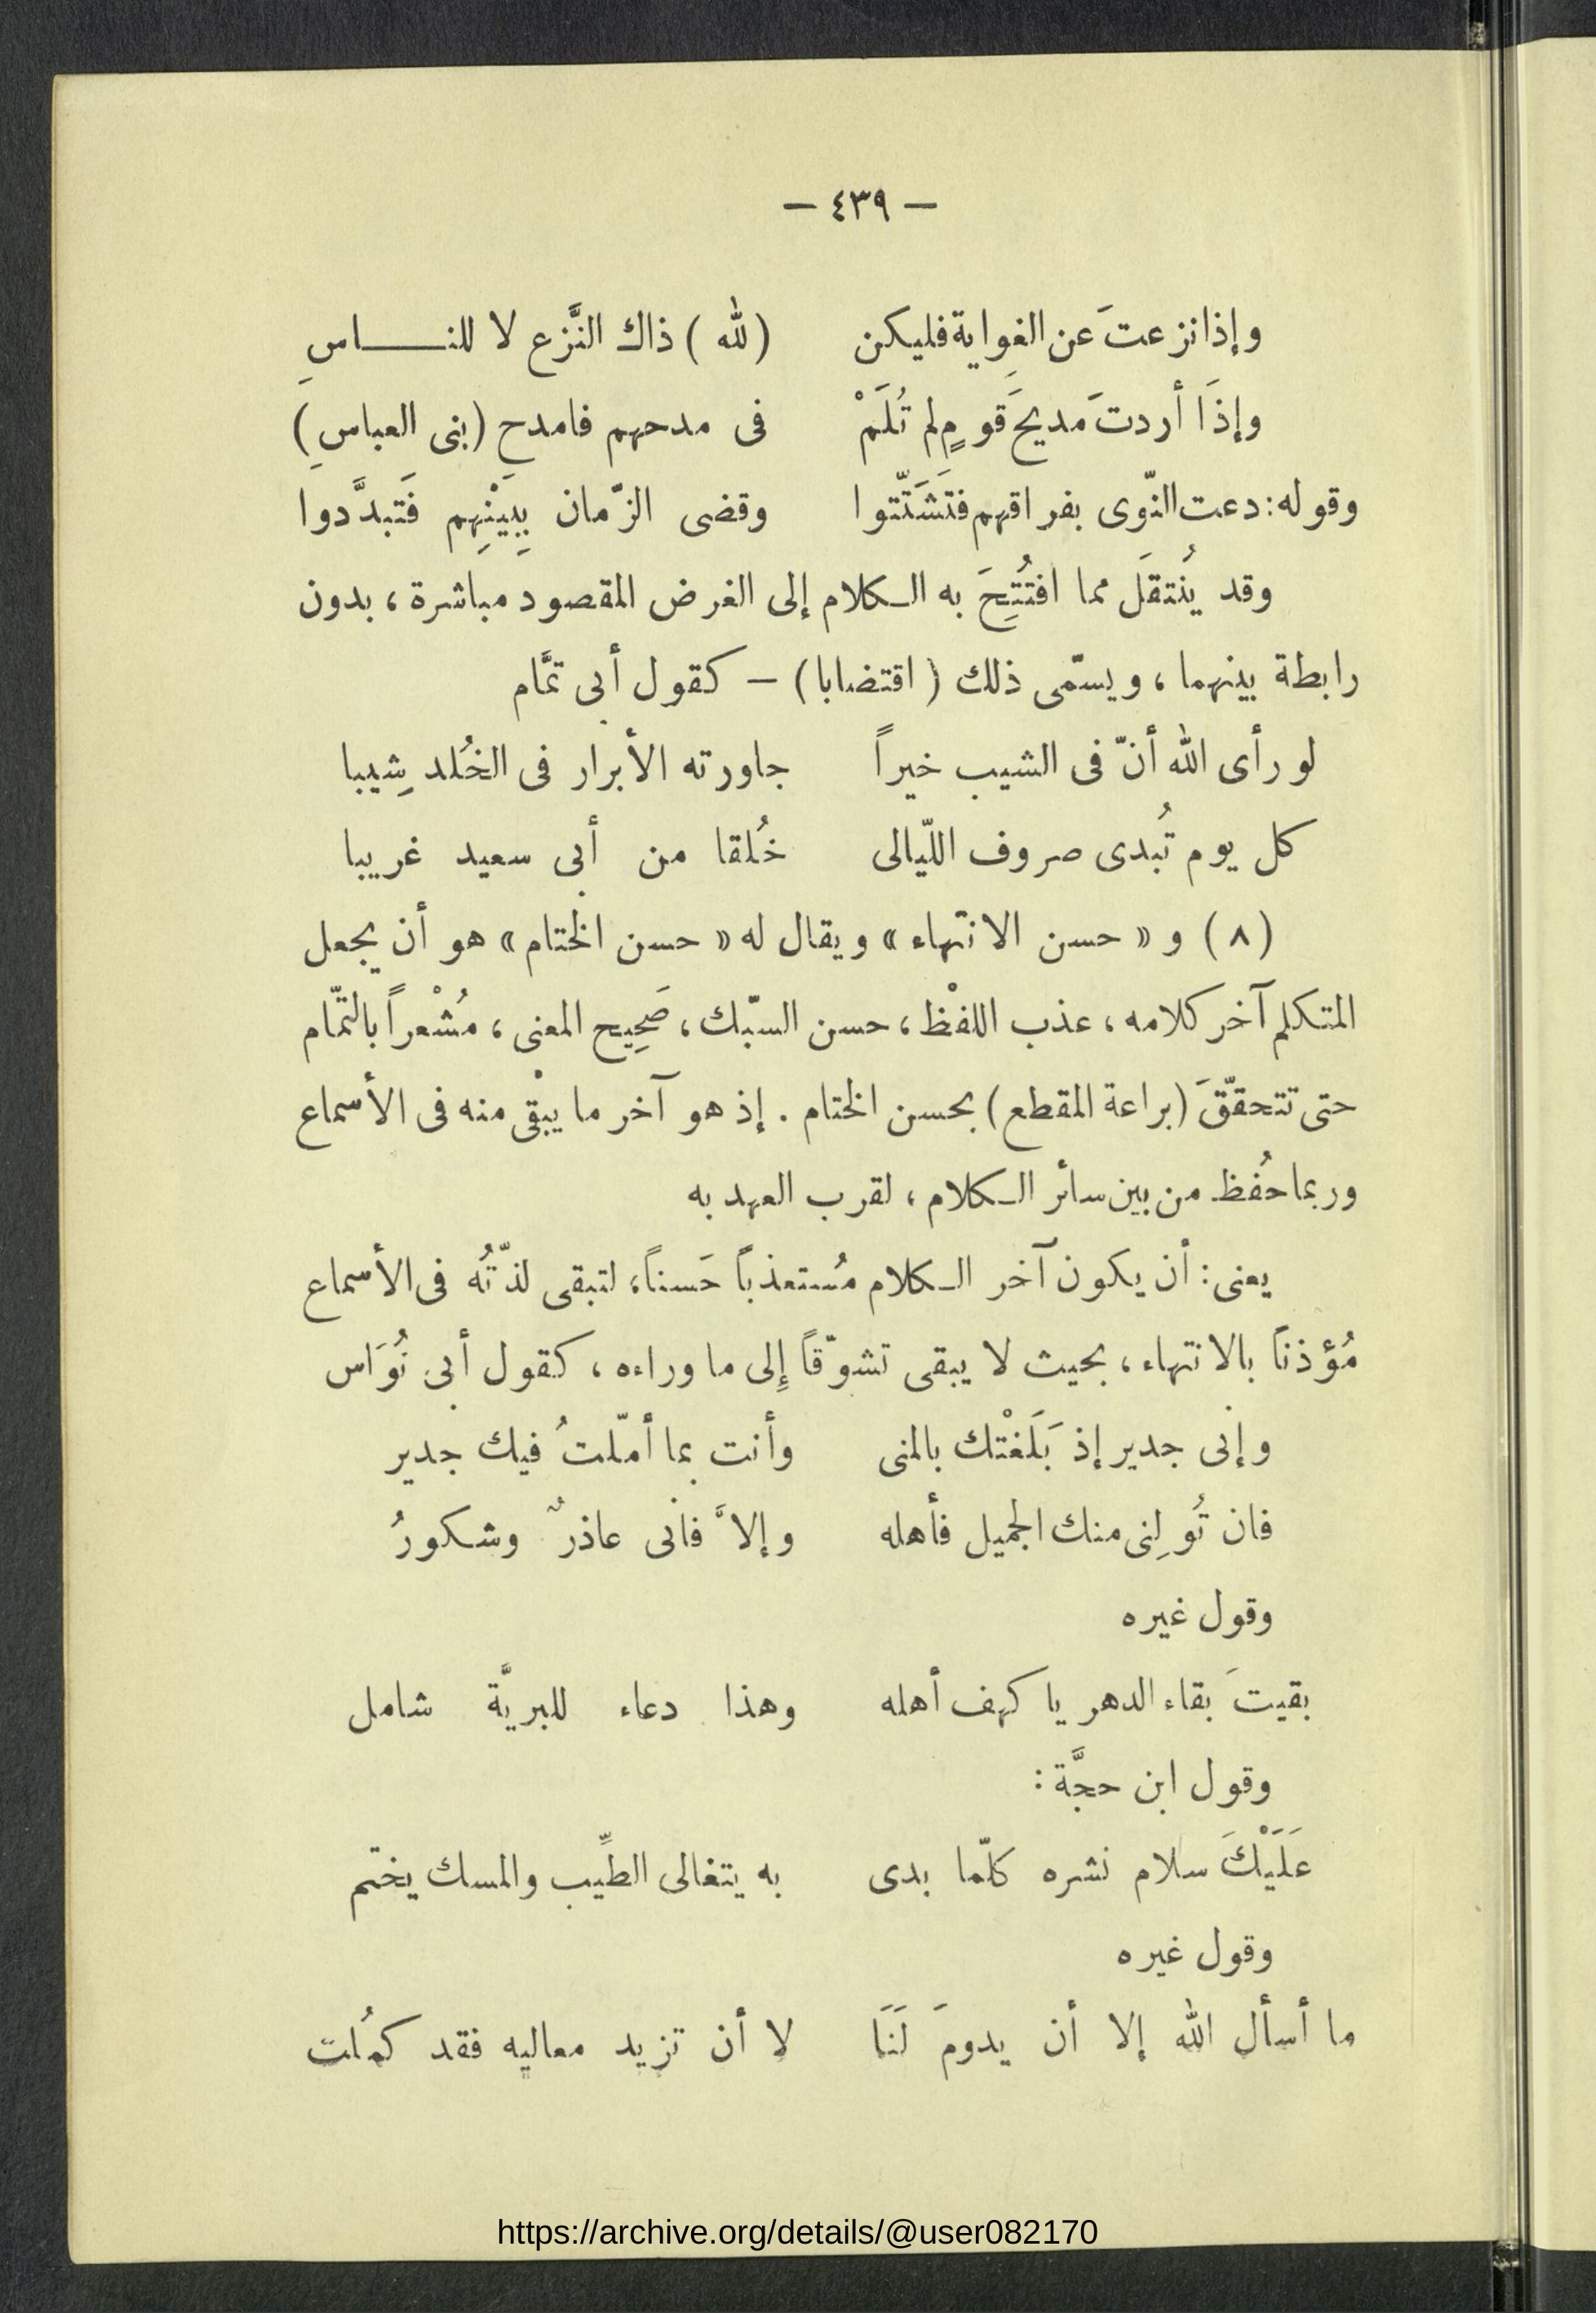 — ٤٣٩ —
وإذا نزعتَ عن الغوِاية فليكن (لله) ذاك النَّزع لا للنـــاسِ
وإذَا أردتَ مديحَ قومٍ لم تُلَمْ فى مدحهم فامدحِ (بنى العباسِ)
وقوله: دعت النّوى بفراقهم فتَشَتّتوا وقضى الزّمان بِبَيْنِهِم فَتبدَّدوا
وقد يُنتقَل مما افتُتِحَ به الكلام إلى الغرض المقصود مباشرة، بدون
رابطة بينهما، ويسمّى ذلك (اقتضابا) — كقول أبى تمَّام
لو رأى الله أنّ فى الشيب خيراً جاورته الأبرار فى الخُلد شِيبا
كل يوم تُبدى صروف اللّيالى خُلقا من أبى سعيد غريبا
(٨) و «حسن الانتهاء» ويقال له «حسن الختام» هو أن يجعل
المتكلم آخر كلامه، عذب اللفْظ، حسن السبّك، صَحِيح المعنى، مُشْعراً بالتّمام
حتى تتحقّقَ (براعة المقطع) بحسن الختام. إذ هو آخر ما يبْقى منه فى الأسماع
وربما حُفظ من بين سائر الكلام، لقرب العهد به
يعنى: أن يكون آخر الكلام مُستعذباً حَسناً، لتبقى لذّتُه فى الأسماع
مُؤذناً بالانتهاء، بحيث لا يبقى تشوّقاً إِلى ما وراءه، كقول أبى نُوَاس
وإنى جدير إذ بَلَغْتك بالمنى وأنت بما أمّلتُ فيك جدير
فان تُولِنى منك الجميل فأهله وإلاَّ فانى عاذرٌ وشكورُ
وقول غيره
بقيتَ بقاء الدهر يا كهف أهله وهذا دعاء للبريَّة شامل
وقول ابن حجَّة:
عَلَيْكَ سلام نشره كلّما بدى به يتغالى الطيِّب والمسك يختم
وقول غيره
ما أسأل الله إلا أن يدومَ لَنَا لا أن تزيد معاليه فقد كمُلت
https://archive.org/details/@user082170